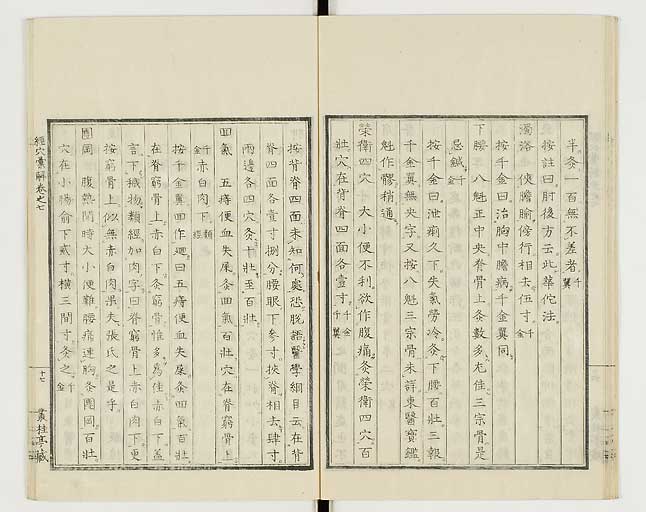 半灸一百無不差者千翼
按註曰肘後方云此華佗法
濁浴 俠膽腧傍行相去五寸千金
按千金曰治胸中膽病千金翼同
下腰 八魁正中央脊骨上灸數多尤佳三宗骨是
忌鍼千金
按千金曰泄痢久下失氣勞冷灸下腰百壯三報
千金翼無失字又按八魁三宗骨未詳東醫寶鑑
魁作髎稍通
榮衛四穴 大小便不利欲作腹痛灸榮衛四穴百
壯穴在背脊四面各壹寸千金千翼
按背脊四面未知何處恐脫語醫學綱目云在背
脊四面各壹寸捌分腰眼下參寸挾脊相去肆寸
兩邊各四穴灸十壯至百壯
回氣 五痔便血失屎灸回氣百壯穴在脊窮骨上
千金赤白肉下類經
按千金翼回作迴曰五痔便血失屎灸回氣百壯
在脊窮骨上赤白下灸窮骨惟多爲佳赤白下蓋
言下穢物類經加肉字曰脊窮骨上赤白肉下更
按窮骨上似無赤白肉果失張氏之是乎
團岡 腹熱閉時大小便難腰痛連胸灸團岡百壯
穴在小腸俞下貳寸橫三間寸灸之千金
經穴彙解卷之七
十七
叢桂亭藏